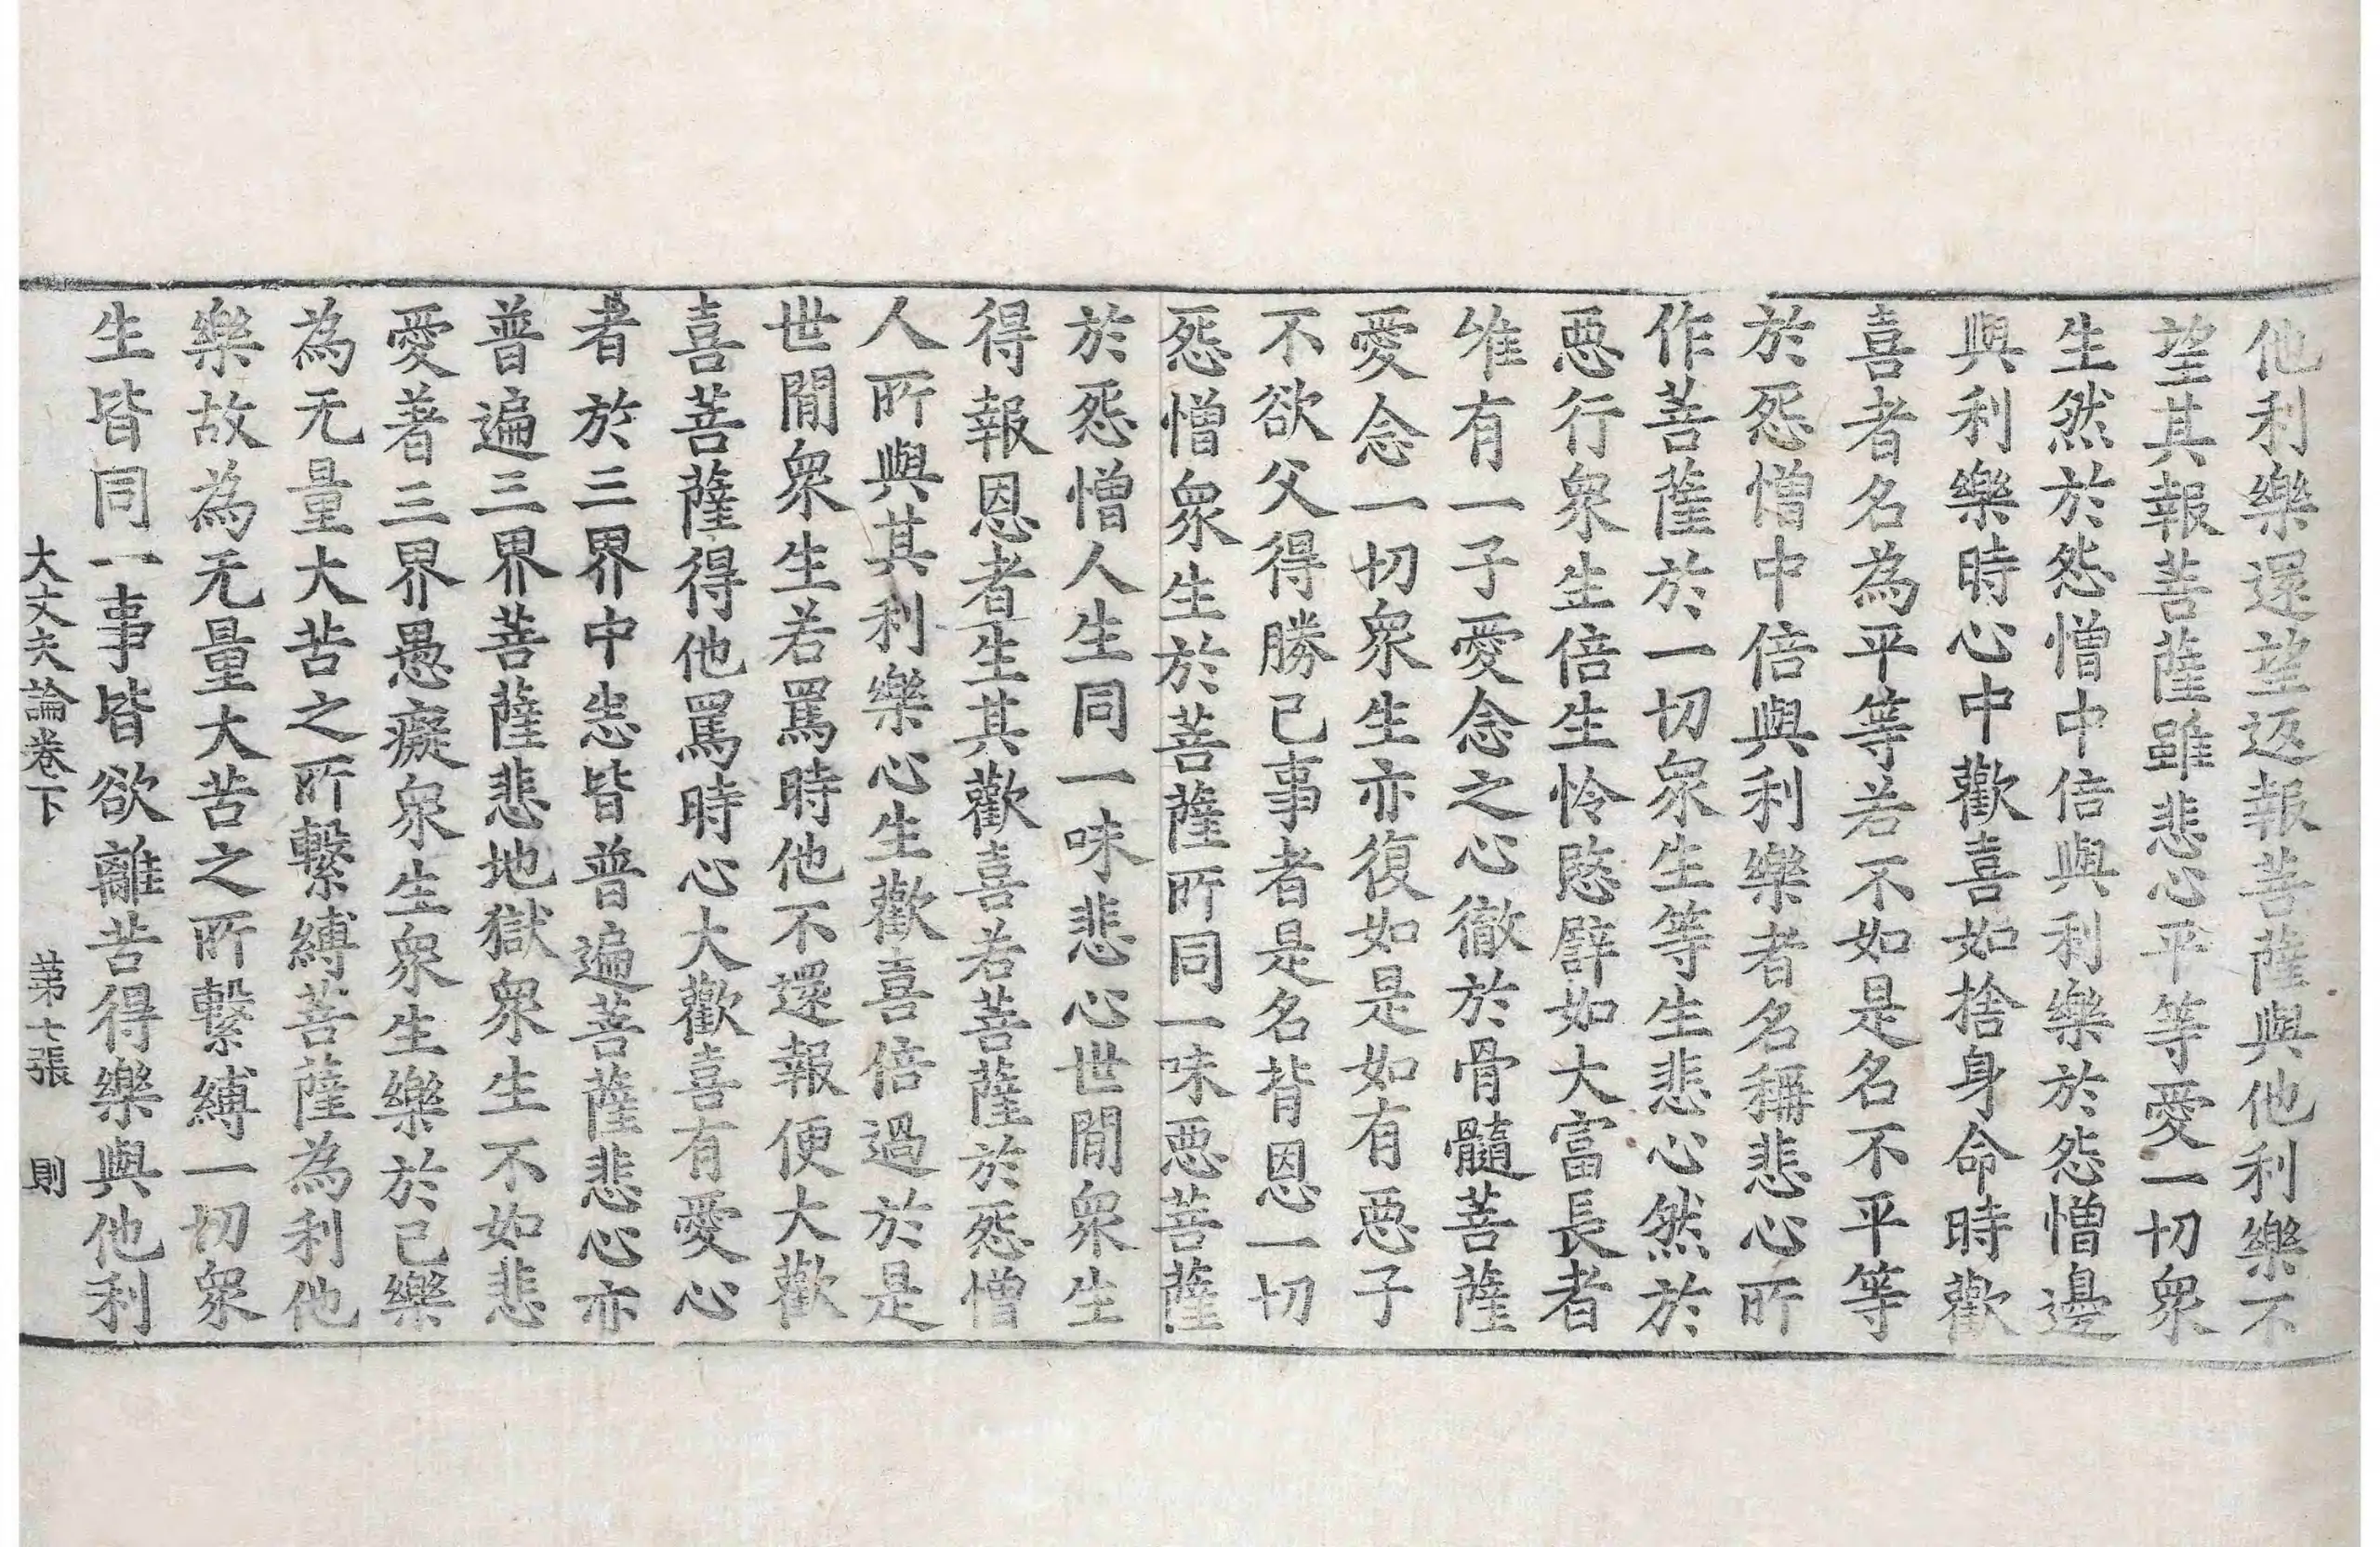 他利樂還望返報菩薩與他利樂不
望其報菩薩雖悲心平等愛一切衆
生然於怨憎中倍與利樂於怨憎邊
與利樂時心中歡喜如捨身命時歡
喜者名為平等若不如是名不平等
於怨憎中倍與利樂者名稱悲心所
作菩薩於一切衆生等生悲心然於
惡行衆生倍生怜愍譬如大富長者
唯有一子愛念之心徹於骨髓菩薩
愛念一切衆生亦復如是如有惡子
不欲父得勝己事者是名背恩一切
怨憎衆生於菩薩所同一味惡菩薩
於怨憎人生同一味悲心世閒衆生
得報恩者生其歡喜若菩薩於怨憎
人所與其利樂心生歡喜倍過於是
世閒衆生若罵時他不還報便大歡
喜菩薩得他罵時心大歡喜有愛心
者於三界中悉皆普遍菩薩悲心亦
普遍三界菩薩悲地獄衆生不如悲
愛著三界愚癡衆生衆生樂於己樂
為无量大苦之所繫縛菩薩為利他
樂故為无量大苦之所繫縛一切衆
生皆同一事皆欲離苦得樂與他利
大丈夫論卷下 第七張 則